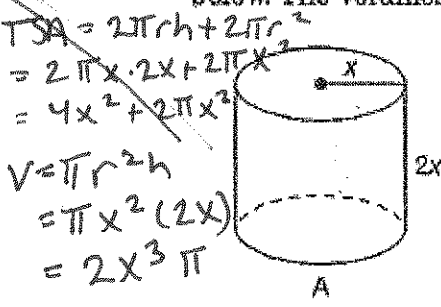 TSA = 2πrh + 2πr²
= 2πx·2x + 2πx²
= 4x² + 2πx²
V = πr²h
= πx²(2x)
= 2x³π
x
2x
A